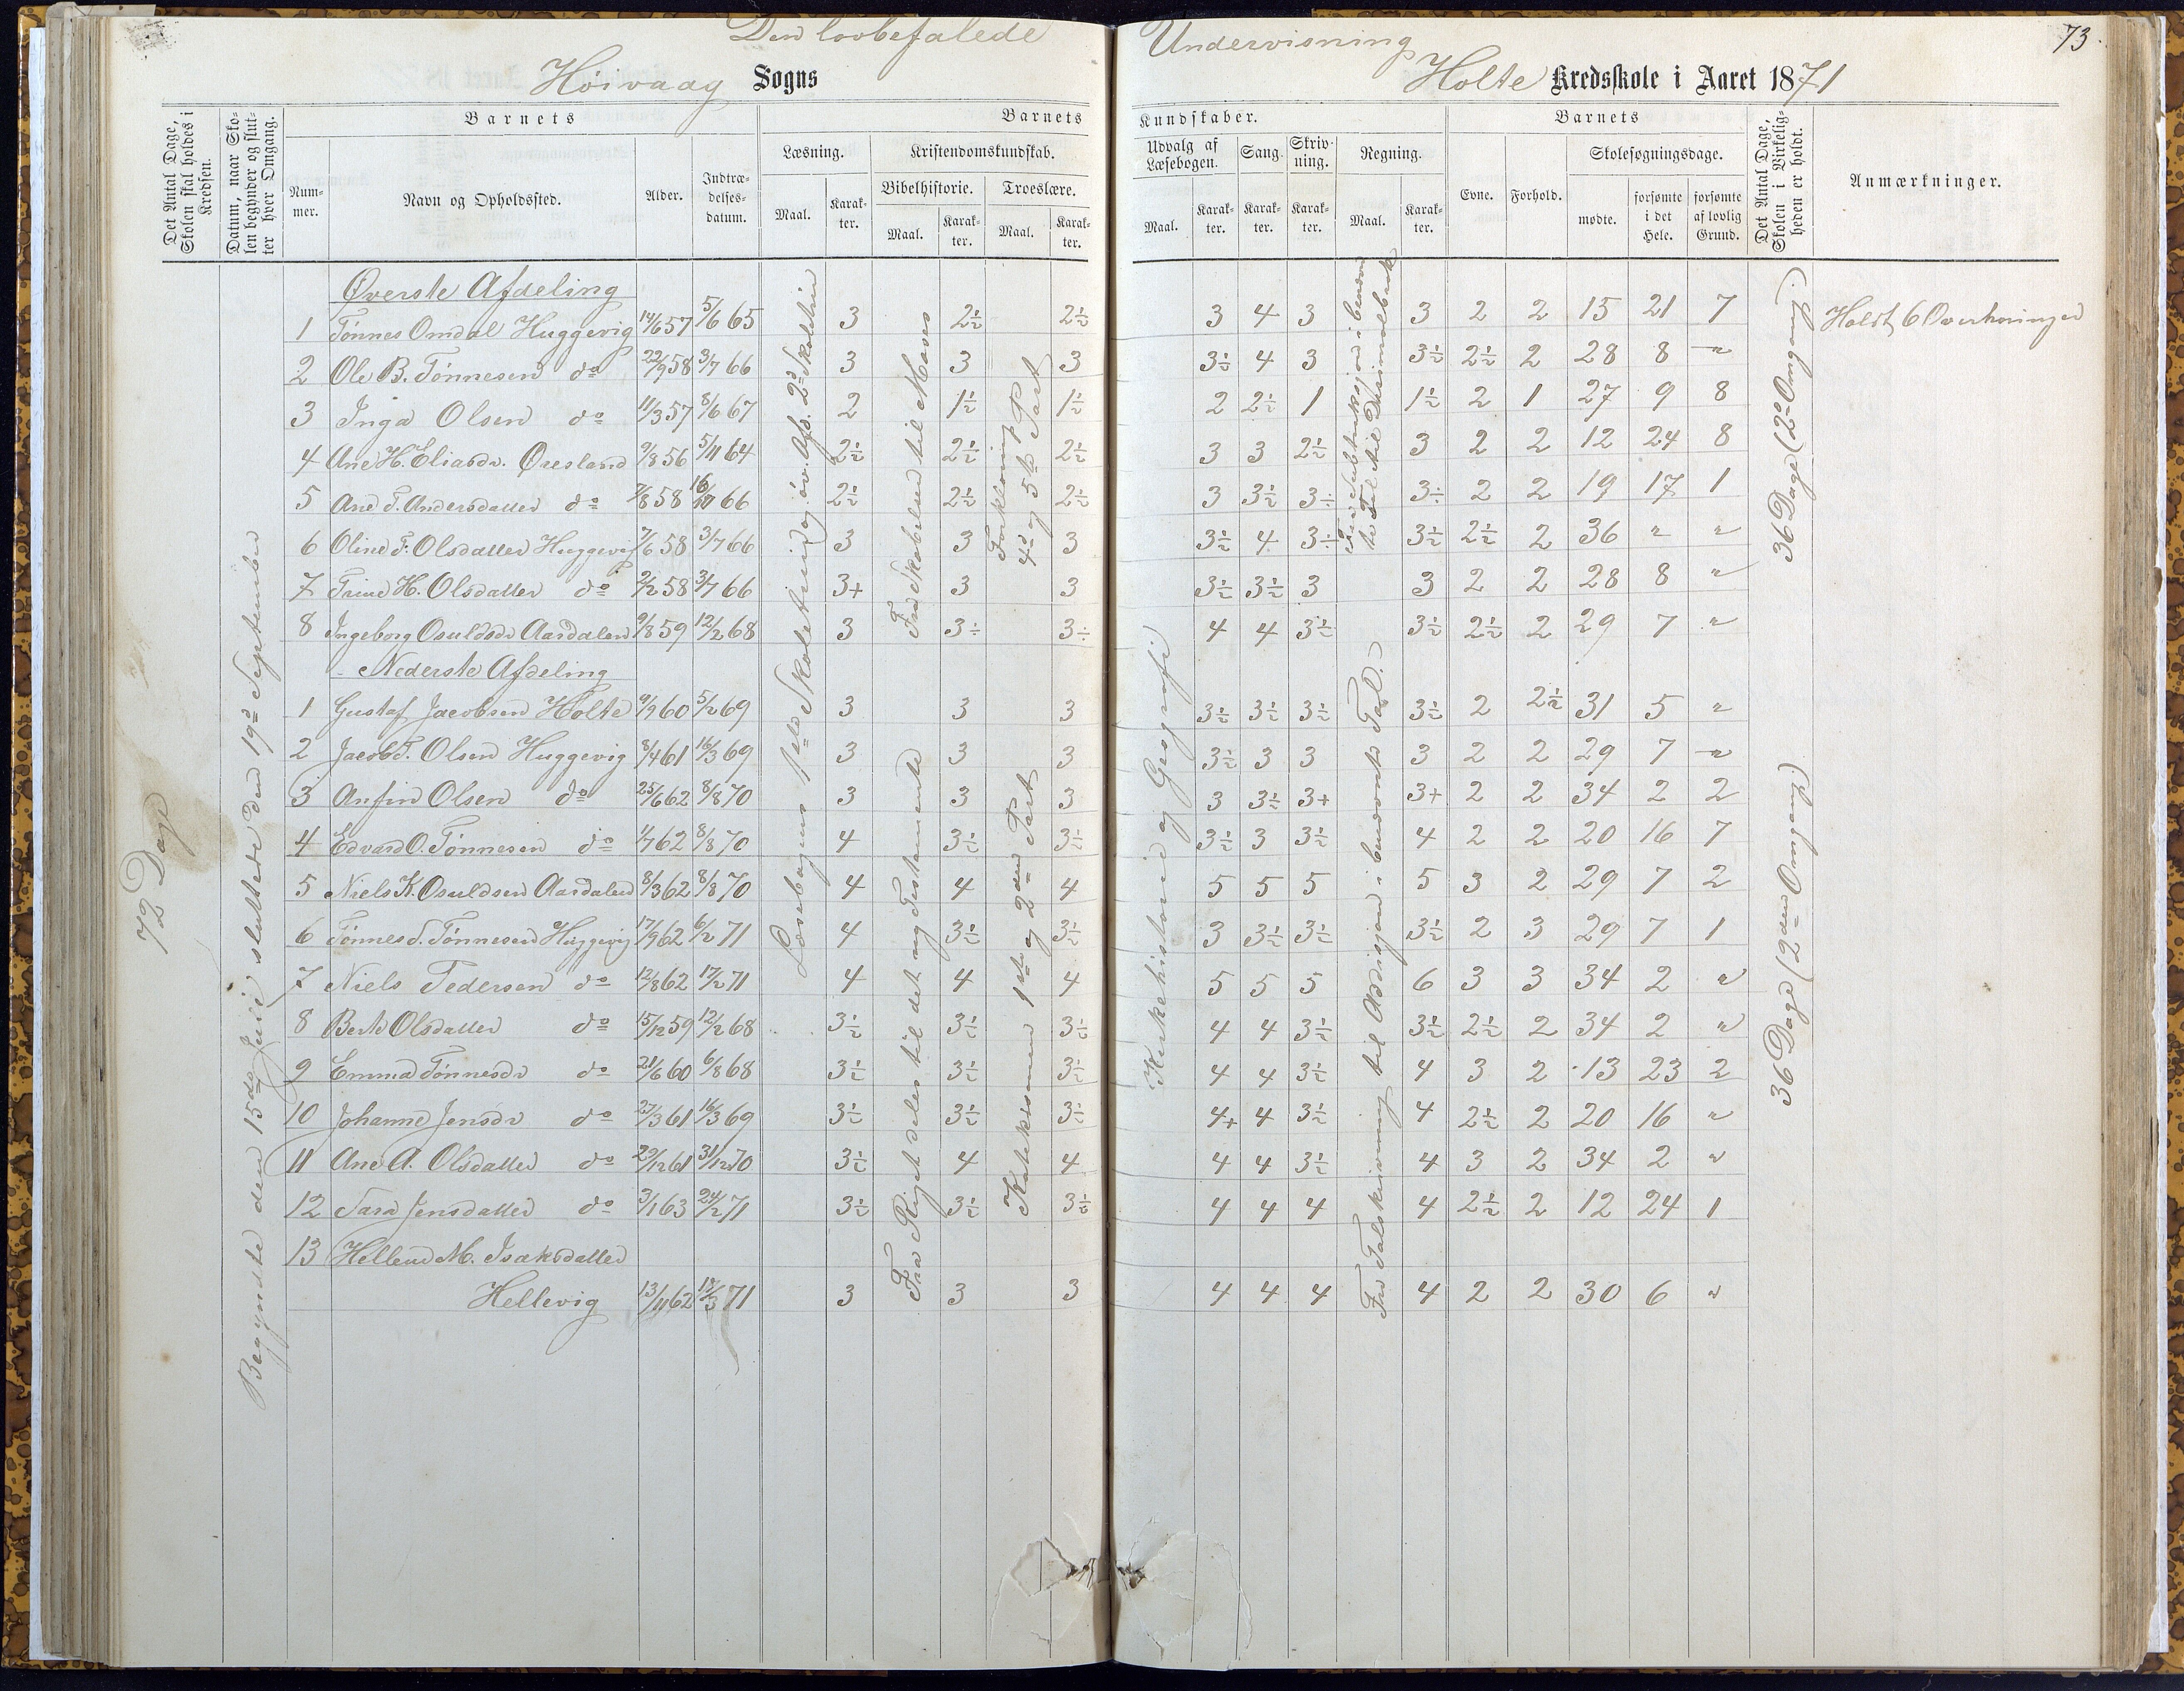 Den lovbefalede Undervisning
73.
Høivaag Sogns
Holte Kredsskole i Aaret 1871
Det Antal Dage, Skolen skal holdes i Kredsen.
Datum, naar Skolen begynder og slutter hver Omgang.
Barnets
Nummer.
Navn og Opholdssted.
Alder.
Indtrædelsesdatum.
Barnets Kundskaber.
Læsning.
Maal.
Karakter.
Kristendomskundskab.
Bibelhistorie.
Maal.
Karakter.
Troeslære.
Maal.
Karakter.
Udvalg af Læsebogen.
Maal.
Karakter.
Sang.
Karakter.
Skrivning.
Karakter.
Regning.
Maal.
Karakter.
Barnets
Evne.
Forhold.
Skolesøgningsdage.
mødte.
forsømte i det Hele.
forsømte af lovlig Grund.
Det Antal Dage, Skolen i Virkeligheden er holdt.
Anmærkninger.
72 Dage
Begyndte den 15de Juli sluttede den 19d September
Læsebogens 1ste Skoletrin og øv. Afd. 2d Skoletrin
Fra Skabelsen til Moses
Fra Riget deles til det nye Testamente
Forklaring 4d og 5te Part
Katekismen 1ste og 2den Part
Kirkehistorie og Geografi
Fra Subtraksjon i benævnte Tal til Desimalbrøk
Fra Talskrivning til Addisjon i benævnte Tal.
36 Dage (2d Omgang.)
36 Dage (2den Omgang.)
Øverste Afdeling
1 Tønnes Omdal Huggevig 14/6 57 5/6 65 3 2½ 2½ 3 4 3 3 2 2 15 21 7 Holdt 6 Overhøringer
2 Ole B. Tønnesen do 22/9 58 3/7 66 3 3 3 3½ 4 3 3½ 2½ 2 28 8 "
3 Inga Olsen do 11/3 57 8/6 67 2 1½ 1½ 2 2½ 1 1½ 2 1 27 9 8
4 Ane H. Eliasdr. Øresland 9/8 56 5/11 64 2½ 2½ 2½ 3 3 2½ 3 2 2 12 24 8
5 Ane T. Andersdatter do 7/8 58 16/11 66 2½ 2½ 2½ 3 3½ 3÷ 3÷ 2 2 19 17 1
6 Oline F. Olsdatter Huggevig 7/6 58 3/7 66 3 3 3 3½ 4 3÷ 3½ 2½ 2 36 " "
7 Trine H. Olsdatter do 2/2 58 3/7 66 3+ 3 3 3½ 3½ 3 3 2 2 28 8 "
8 Ingeborg Osuldsdr Aasdalen 9/8 59 12/2 68 3 3÷ 3÷ 4 4 3½ 3½ 2½ 2 29 7 "
Nederste Afdeling
1 Gustaf Jacobsen Holte 4/9 60 5/2 69 3 3 3 3½ 3½ 3½ 3½ 2 2½ 31 5 "
2 Jacob T. Olsen Huggevig 8/4 61 16/3 69 3 3 3 3½ 3 3 3 2 2 29 7 "
3 Anfin Olsen do 25/6 62 8/8 70 3 3 3 3 3½ 3+ 3+ 2 2 34 2 2
4 Edvard O. Tønnesen do 1/7 62 8/8 70 4 3½ 3½ 3½ 3 3½ 4 2 2 20 16 7
5 Niels K. Osuldsen Aasdalen 8/3 62 8/8 70 4 4 4 5 5 5 5 3 2 29 7 2
6 Tønnes S. Tønnesen Huggevig 17/9 62 6/2 71 4 3½ 3½ 3 3½ 3½ 3½ 2 3 29 7 1
7 Niels Pedersen do 12/8 62 17/2 71 4 4 4 5 5 5 6 3 3 34 2 "
8 Berte Olsdatter do 15/12 59 12/2 68 3½ 3½ 3½ 4 4 3½ 3½ 2½ 2 34 2 "
9 Emma Tønnesdr do 21/6 60 6/8 68 3½ 3½ 3½ 4 4 3½ 4 3 2 13 23 2
10 Johanne Jensdr do 27/3 61 16/3 69 3½ 3½ 3½ 4+ 4 3½ 4 2½ 2 20 16 "
11 Ane A. Olsdatter do 29/12 61 31/12 70 3½ 4 4 4 4 3½ 4 3 2 34 2 "
12 Sara Jensdatter do 3/1 63 24/2 71 3½ 3½ 3½ 4 4 4 4 2½ 2 12 24 1
13 Hellene M. Isaksdatter
Hellevig 13/11 62 18/3 71 3 3 3 4 4 4 4 2 2 30 6 "